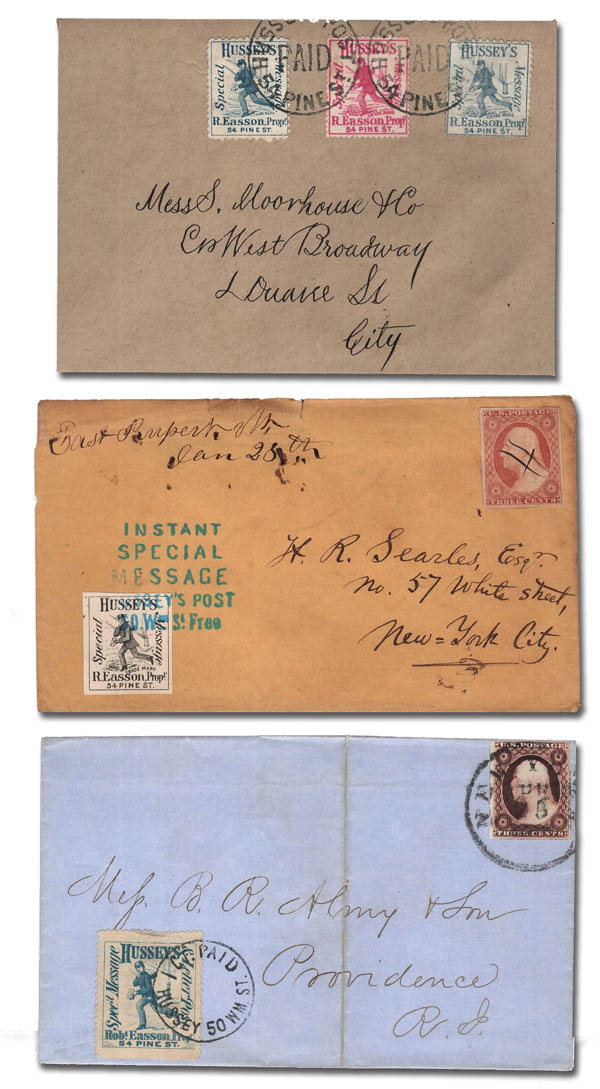 HUSSEY'S POST PAID 54 PINE ST.
HUSSEY'S POST PAID 54 PINE
HUSSEY'S
Special Message
R.Easson, Propr.
54 PINE ST.
HUSSEY'S
Special Message
R.Easson, Propr.
54 PINE ST.
HUSSEY'S
Special Message
R.Easson, Propr.
54 PINE ST.
Mess S. Moorhouse & Co
Cor West Broadway
& Duane St
City
East Rupert, Vt.
Jan 28th
U.S. POSTAGE
THREE CENTS
INSTANT
SPECIAL
MESSAGE
HUSSEY'S POST
50 Wm St. Free
HUSSEY'S
Special Message
TRADE MARK
R.Easson, Propr.
54 PINE ST.
H. R. Searles, Esqr.
No. 57 White street,
New=York City.
U.S. POSTAGE
THREE CENTS
NEW
5
Mess B. R. Almy & Son
Providence
R. I.
HUSSEY'S
Specl. Message Letter Post
Robt. Easson, Prop
54 PINE ST.
1 CT PAID
HUSSEY 50 WM ST.